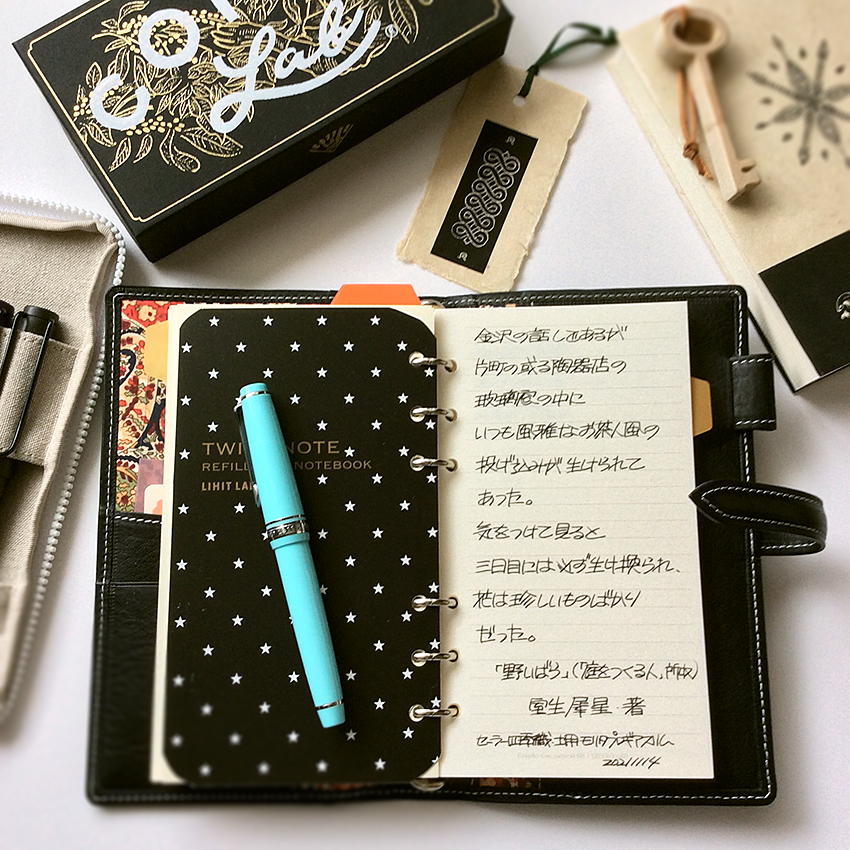 Lab
TWI NOTE
REFILL NOTEBOOK
LIHIT LA
金沢の話しであるが
片町の或る陶器店の
玻璃窓の中に
いつも風雅なお茶人風の
投げ込みが生けられて
あった。
気をつけて見ると
三日目には必ず生け換られ、
花は珍しいものばかり
だった。
「野いばら」(「庭をつくる人」所収)
室生犀星・著
セーラー四季織
20211114